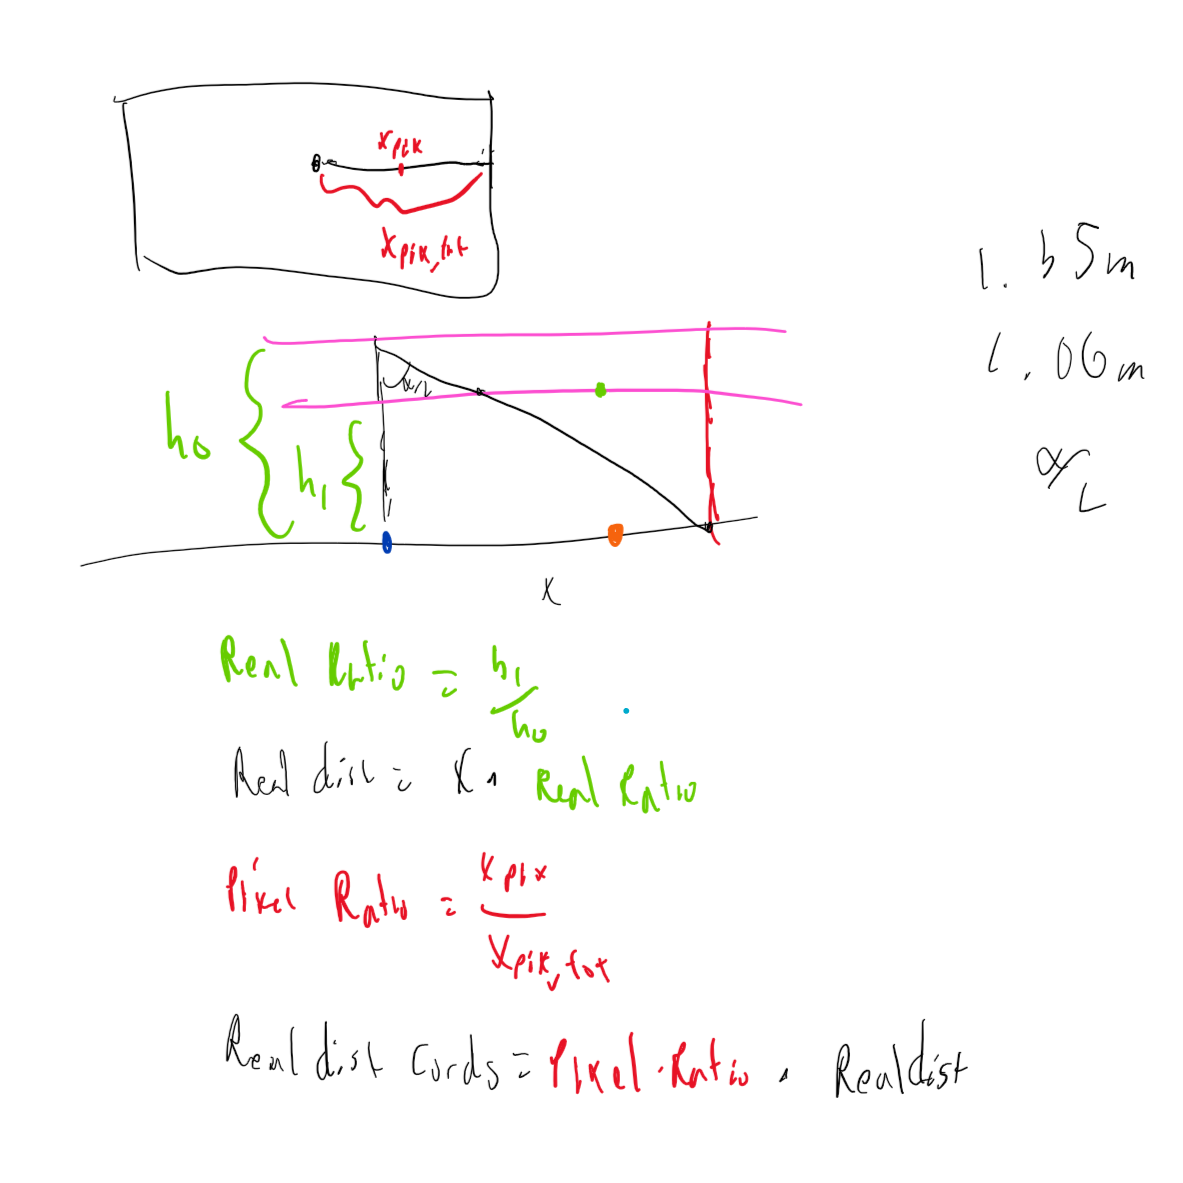 xpix
xpix,tot
α/2
h0
h1
x
1.65m
1.06m
α/2
Real Ratio = h1/h0
Real dist = x · Real Ratio
Pixel Ratio = xpix/xpix,tot
Real dist Cords = Pixel·Ratio · Realdist